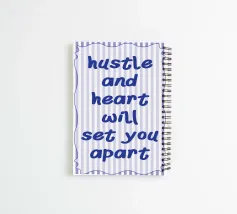 hustle
and
heart
will
set you
apart